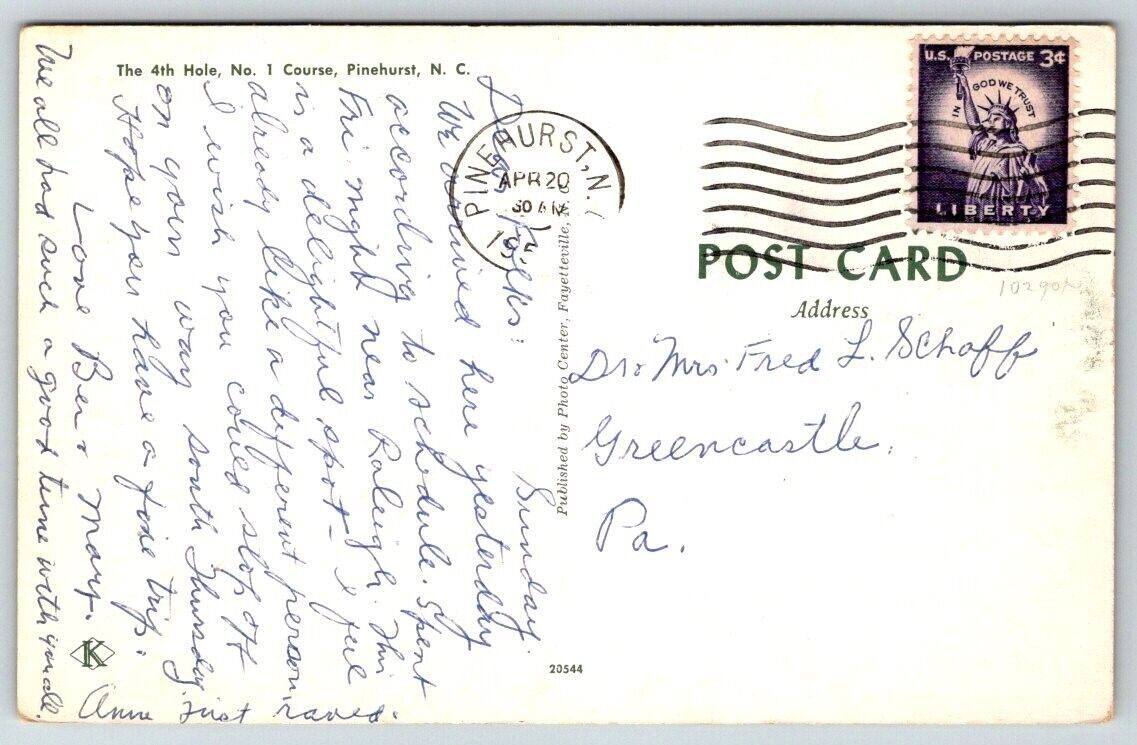 The 4th Hole, No. 1 Course, Pinehurst, N. C.
Sunday.
Dear Folks:
We arrived here yesterday
according to schedule. Spent
Fri. night near Raleigh. This
is a delightful spot – I feel
already like a different person.
I wish you could stop off
on your way south Thursday.
Hope you have a fine trip.
Love Ben & Mary.
We all had such a good time with you all.
Anne just raved.
K
PINEHURST, N.
APR 20
30 AM
195
Published by Photo Center, Fayetteville, N
20544
U.S. POSTAGE 3¢
IN GOD WE TRUST
LIBERTY
POST CARD
Address
Dr & Mrs. Fred L. Schaff
Greencastle,
Pa.